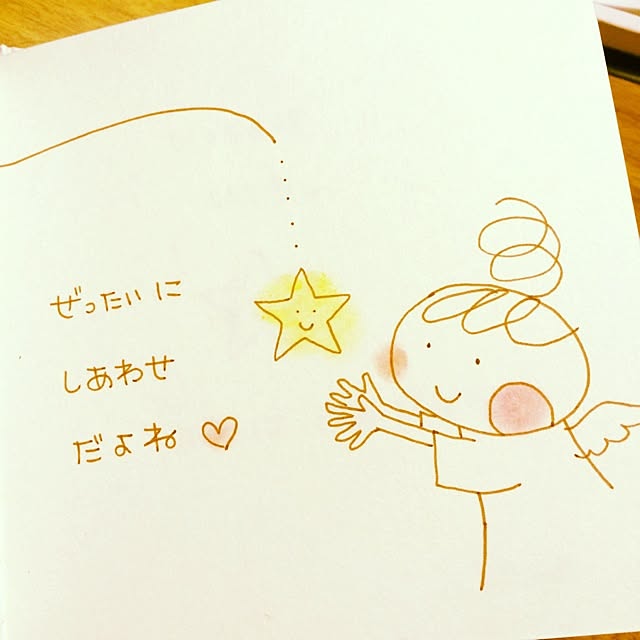 ぜったいに
しあわせ
だよね♡